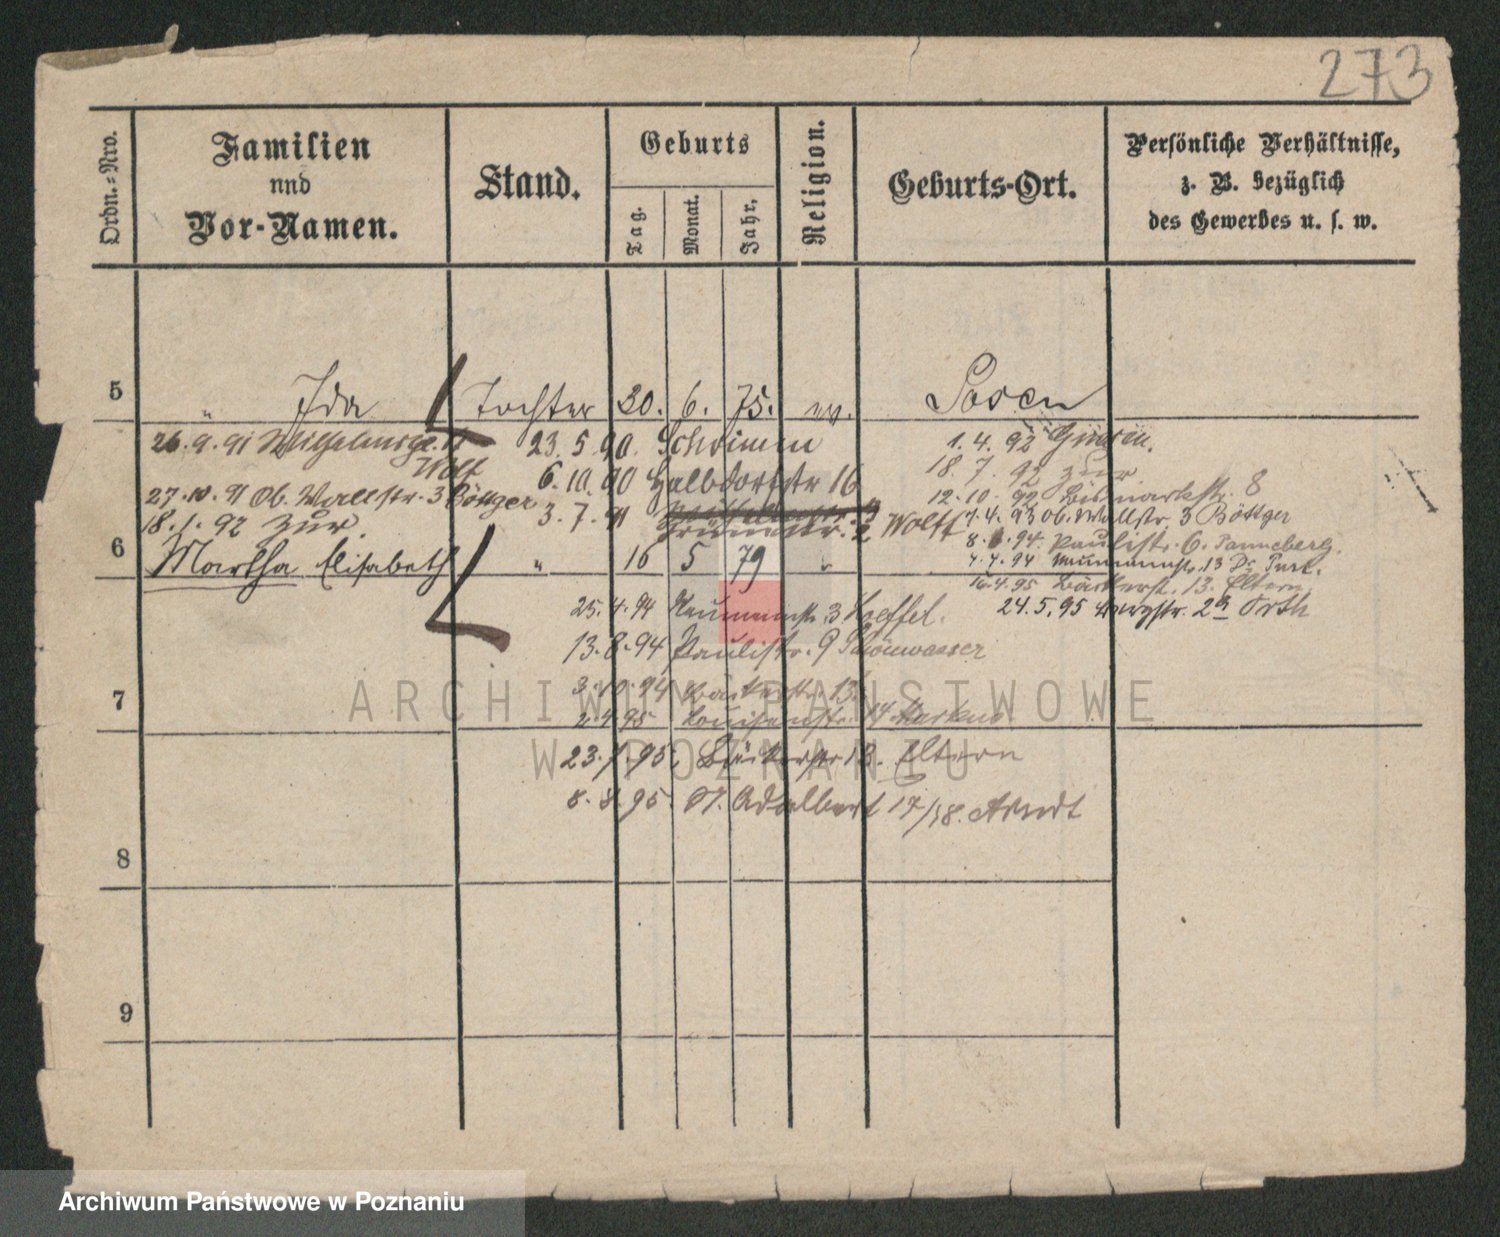 273
Ordn.-Nro.
Familien
und
Vor-Namen.
Stand.
Geburts
Tag.
Monat.
Jahr.
Religion.
Geburts-Ort.
Persönliche Verhältnisse,
z. B. bezüglich
des Gewerbes u. s. w.
5 " Ida Tochter 30. 6. 75. ev. Posen
26.9.91 23.5.90. Schrimm 1.4.92
Wolf 6.10.90 Halbdorfstr 16 18.7.92 zur
27.10.91 Ob. Wallstr. 3 Böttger 12.10.92 Bismarckstr. 8
18.1.92 zur 3.7.91 2 Wolff 4.93 Ob. Wallstr. 3 Böttger
94. Paulistr. 6. Panneberg.
6 Martha Elisabeth " 16 5 79 " 4.94 13
16.4.95 Bäckerstr. 13. Eltern
25.4.94 3 24.5.95 Bergstr. 2a Orth
13.8.94 Paulistr. 9 Schönwasser
7 3.10.94 Bäckerstr. 13.
2.4.95 Louisenstr. 14 Markus
23.1.95. Bäckerstr 13. Eltern
8.8.95. St. Adalbert 17/18. Arndt
8
9
ARCHIWUM PAŃSTWOWE
W POZNANIU
Archiwum Państwowe w Poznaniu